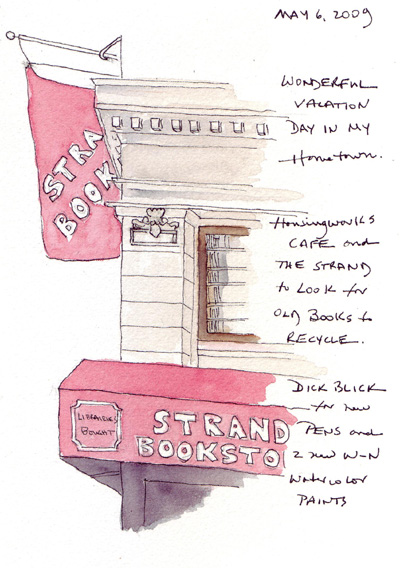 MAY 6, 2009
WONDERFUL
VACATION
DAY IN MY
Hometown.
STRA
BOOK
HousingWorks
CAFE and
THE STRAND
to LOOK for
OLD BOOKS to
RECYCLE.
LIBRARIES
BOUGHT
STRAND
BOOKSTO
DICK BLICK
for new
PENS and
2 new W-N
WATERCOLOR
PAINTS